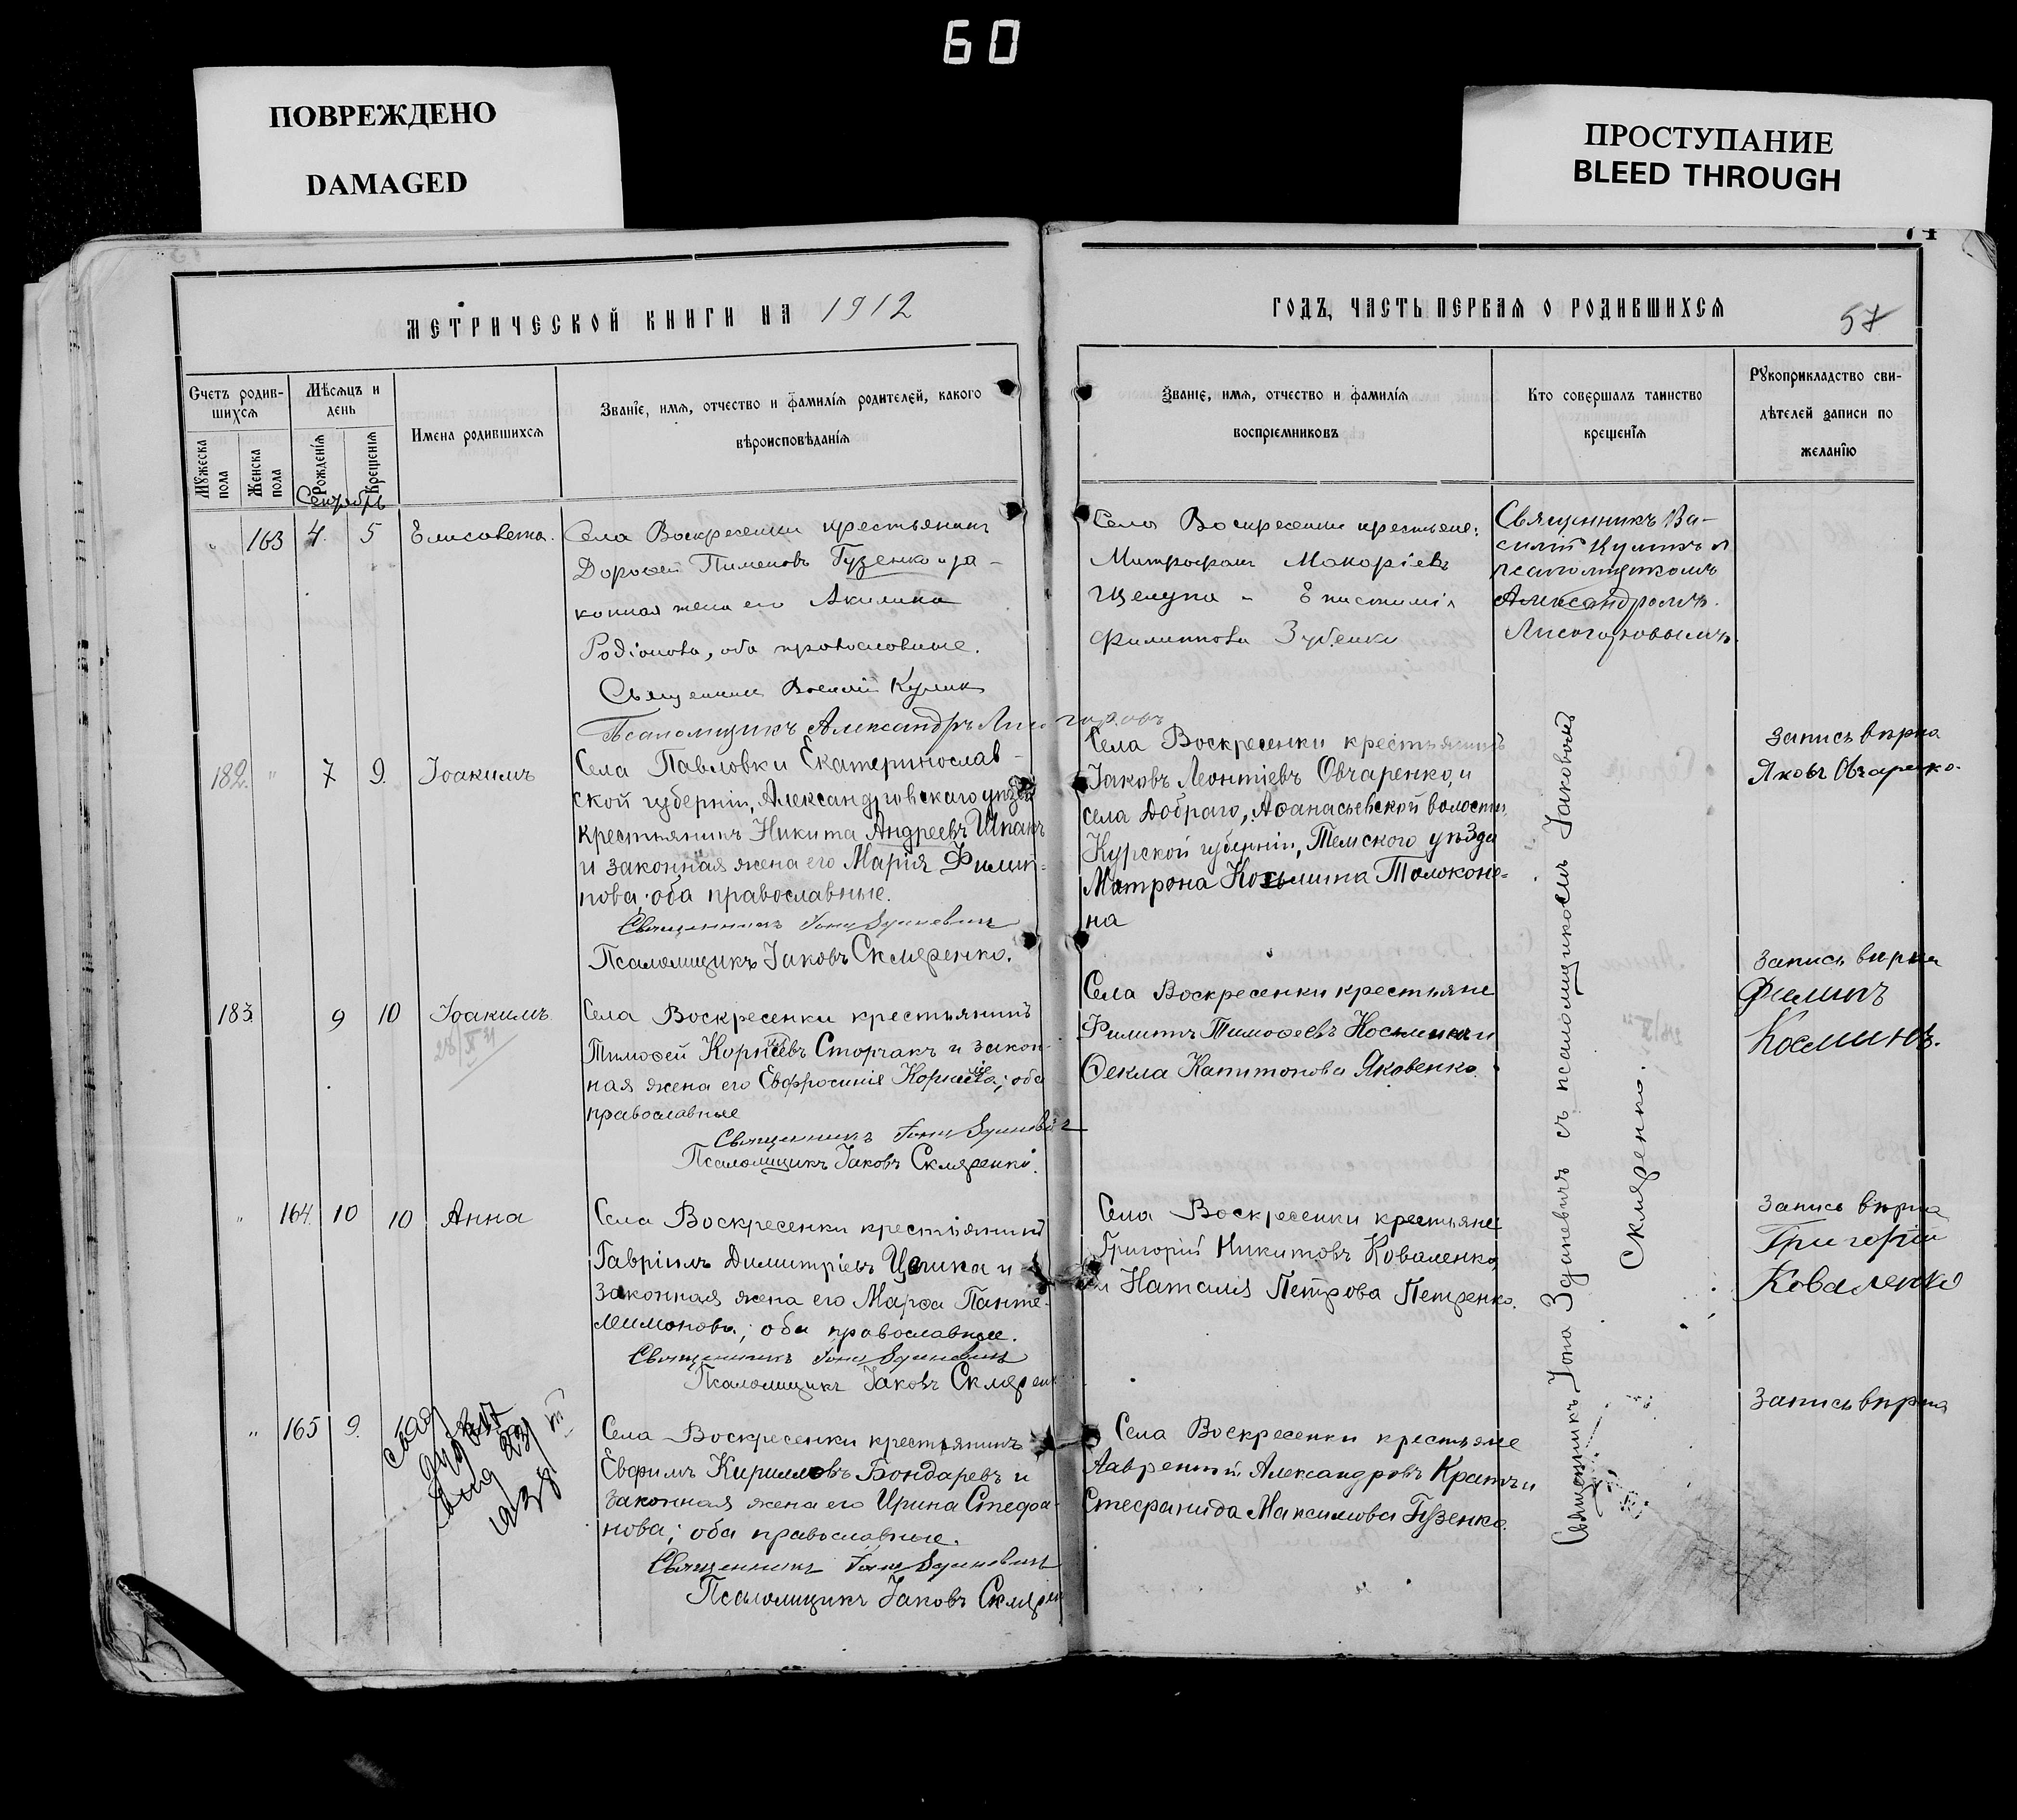 60
ПОВРЕЖДЕНО
DAMAGED
ПРОСТУПАНИЕ
BLEED THROUGH
МЕТРИЧЕСКОЙ КНИГИ НА 1912
Счетъ родив-
шихся
Мѣсяцъ и
день
Имена родившихся
Званіе, имя, отчество и фамилія родителей, какого
вѣроисповѣданія
Мужеска пола
Женска пола
Рожденія
Крещенія
Сентябрь
" 163 4. 5 Елисовета.
Села Воскресенки крестьянинъ
Дорофей Пименовъ Гузенко и за-
конная жена его Акилина
Родіонова, оба православные.
Священникъ Василій Кулик
Псаломщикъ Александръ Лисогоровъ
182. " 7 9. Іоакимъ
Села Павловки Екатеринослав-
ской губерніи, Александровскаго уѣзда
крестьянинъ Никита Андреевъ Шпакъ
и законная жена его Марія Филип-
пова; оба православные.
Священникъ Іона Здановичъ
Псаломщикъ Іаковъ Скляренко.
183. 9 10 Іоакимъ
Села Воскресенки крестьянинъ
Тимофей Корнѣевъ Сторчакъ и закон-
ная жена его Евфросинія; оба
православные
Священникъ Іона
Псаломщикъ Іаковъ Скляренко.
" 164. 10 10 Анна
Села Воскресенки крестіянинъ
Гавріилъ Димитріевъ и
законная жена его Марфа Панте-
леимонова; оба православные.
Священникъ Іона
Псаломщикъ Іаковъ Скляренк
" 165 9.
1938
Села Воскресенки крестьянинъ
Евфимъ Кирилловъ Бондаревъ и
законная жена его Ирина Стефа-
нова; оба православные.
Священникъ Іона
Псаломщикъ Іаковъ Склярен
ГОДЪ, ЧАСТЬ ПЕРВАЯ О РОДИВШИХСЯ
57
Званіе, имя, отчество и фамилія
воспріемниковъ
Кто совершалъ таинство
крещенія
Рукоприкладство сви-
дѣтелей записи по
желанію
Села Воскресенки крестьяне:
Митрофанъ Макаріевъ
Щелупа и Епистимія
Филиппова Зубенки
Священникъ Ва-
силій Куликъ съ
псаломщикомъ
Александромъ
Лисогоровымъ.
Села Воскресенки крестьянинъ
Іаковъ Леонтіевъ Овчаренко, и
села Добраго, Афанасьевской волости,
Курской губерніи, Тимского уѣзда
Матрона Козьмина Толоконе-
на
Запись вѣрна
Яковъ Овчаренко.
Села Воскресенки крестьяне
Филиппъ Тимофеевъ Косминъ и
Фекла Капитонова Яковенко.
Запись вѣрна
Филипъ
Косминъ.
Села Воскресенки крестьяне
Григорій Никитовъ Коваленко
и Наталія Петрова Петренко.
Запись вѣрна
Григорій
Коваленко
Села Воскресенки крестьяне
Лаврентій Александровъ Кратъ и
Стефанида Максимова Гузенко.
Запись вѣрна
Священникъ Іона Здановичъ съ псаломщикомъ Іаковомъ
Скляренко.